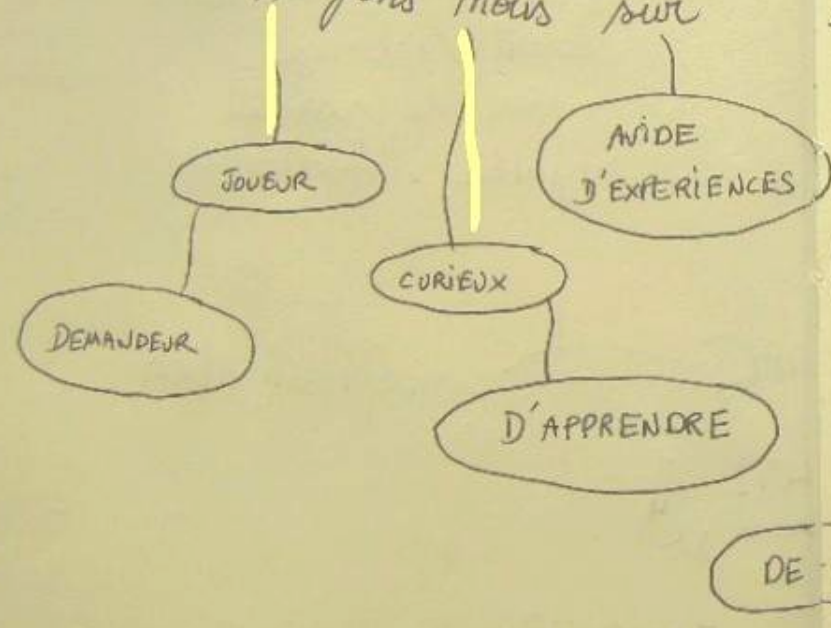 nous sur
JOUEUR
AVIDE
D'EXPERIENCES
CURIEUX
DEMANDEUR
D'APPRENDRE
DE